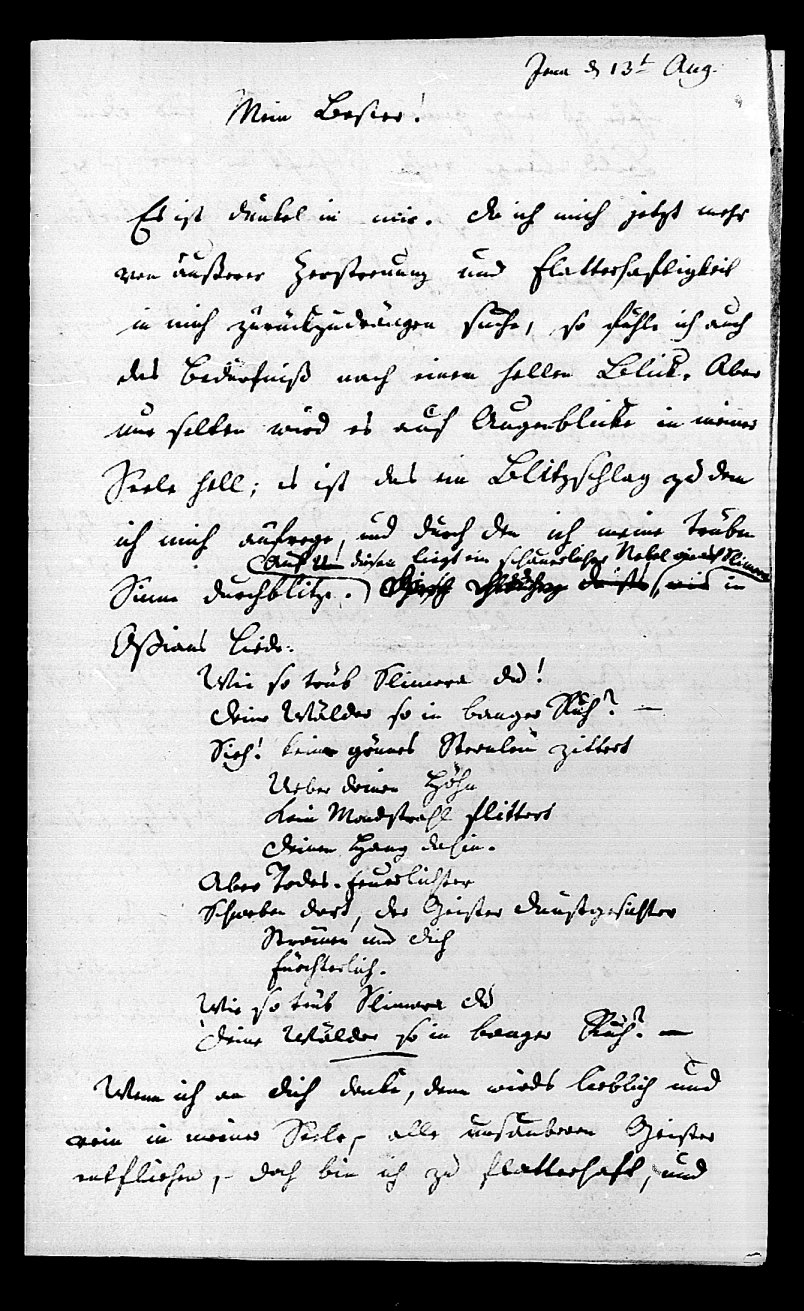 Jena d 13t Aug.
Mein Bester!
Es ist dunkel in mir. Da ich mich jetzt mehr
von äußerer Zerstreuung und Flatterhaftigkeit
in mich zurückzudrängen suche, so fühle ich auch
das Bedürfniß nach einem hellen Blick. Aber
nur selten wird es auf Augenblicke in meiner
Seele hell; es ist das ein Blitzschlag zu dem
ich mich aufrege, und durch den ich meine trüben
Auf diesen liegt ein schauerlicher Nebel
Sinne durchblitze. wie in
Oßians Liede:
Wie so trüb Slimora du!
Deine Wälder so in banger Ruh? —
Sieh! keine Sternlein zittert
Ueber deinen Höhn
Kein Mondstrahl flittert
Deinen Hang dahin.
Aber Todes-Feuerlichter
Schweben dort, der Geister Dunstgesichter
Strömen um dich
Fürchterlich.
Wie so trüb Slimora du
Deine Wälder so in banger Ruh? —
Wenn ich an dich denke, dann wirds lieblich und
rein in meiner Seele, alle unsauberen Geister
entfliehen, – doch bin ich zu flatterhaft, und